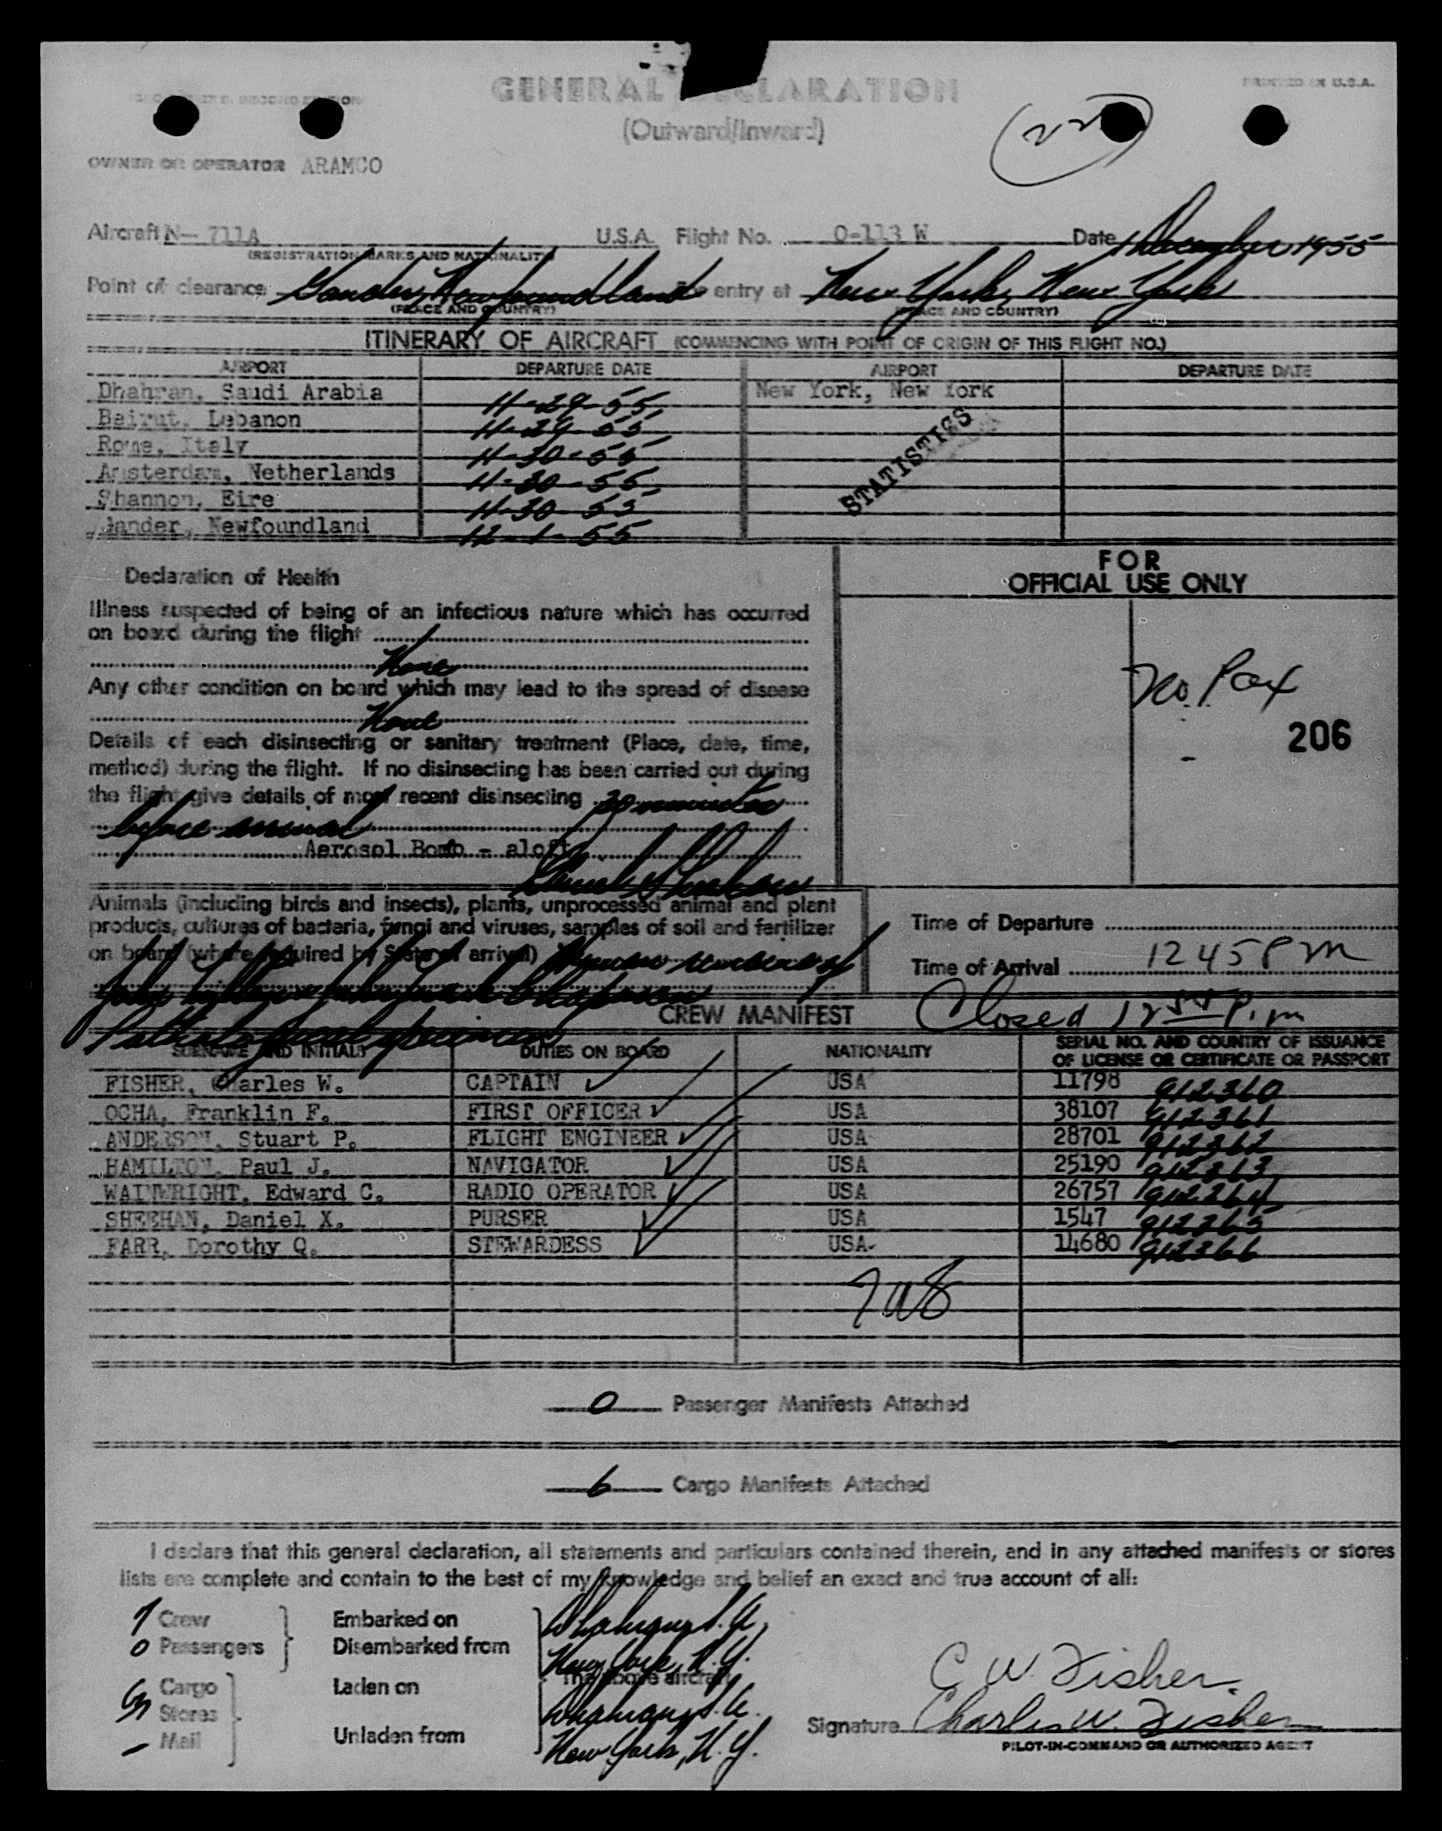 GENERAL DECLARATION
PRINTED IN U.S.A.
(Outward/Inward)
OWNER OR OPERATOR ARAMCO
Aircraft N— 711A U.S.A. Flight No. O-113 W Date 1 December 1955
(REGISTRATION MARKS AND NATIONALITY)
Point of clearance Gander, Newfoundland entry at New York, New York
(PLACE AND COUNTRY) (PLACE AND COUNTRY)
ITINERARY OF AIRCRAFT (COMMENCING WITH POINT OF ORIGIN OF THIS FLIGHT NO.)
AIRPORT DEPARTURE DATE AIRPORT DEPARTURE DATE
Dhahran, Saudi Arabia 11-29-55 New York, New York
Beirut, Lebanon 11-29-55
Rome, Italy 11-30-55
Amsterdam, Netherlands 11-30-55
Shannon, Eire 11-30-55
Gander, Newfoundland 12-1-55
STATISTICS
FOR
OFFICIAL USE ONLY
Declaration of Health
Illness suspected of being of an infectious nature which has occurred
on board during the flight
None
Any other condition on board which may lead to the spread of disease
None
No Pax
206
Details of each disinsecting or sanitary treatment (Place, date, time,
method) during the flight. If no disinsecting has been carried out during
the flight give details of most recent disinsecting 30 minutes
before arrival
Aerosol Bomb - aloft
Animals (including birds and insects), plants, unprocessed animal and plant
products, cultures of bacteria, fungi and viruses, samples of soil and fertilizer
on board (where required by State of arrival)
Time of Departure
Time of Arrival 1245 PM
Closed 12 55 P.m
CREW MANIFEST
SURNAME AND INITIALS DUTIES ON BOARD NATIONALITY SERIAL NO. AND COUNTRY OF ISSUANCE
OF LICENSE OR CERTIFICATE OR PASSPORT
FISHER, Charles W. CAPTAIN USA 11798 912360
OCHA, Franklin F. FIRST OFFICER USA 38107 912361
ANDERSON, Stuart P. FLIGHT ENGINEER USA 28701 912362
HAMILTON, Paul J. NAVIGATOR USA 25190
WAINWRIGHT, Edward C. RADIO OPERATOR USA 26757
SHEEHAN, Daniel X. PURSER USA 1547
FARR, Dorothy Q. STEWARDESS USA 14680 912366
0 Passenger Manifests Attached
6 Cargo Manifests Attached
I declare that this general declaration, all statements and particulars contained therein, and in any attached manifests or stores
lists are complete and contain to the best of my knowledge and belief an exact and true account of all:
7 Crew Embarked on Dhahran, S.A.
0 Passengers Disembarked from New York, N.Y.
The above aircraft
Cargo Laden on Dhahran, S.A.
Stores
Mail Unladen from New York, N.Y.
C. W. Fisher
Signature Charles W. Fisher
PILOT-IN-COMMAND OR AUTHORIZED AGENT